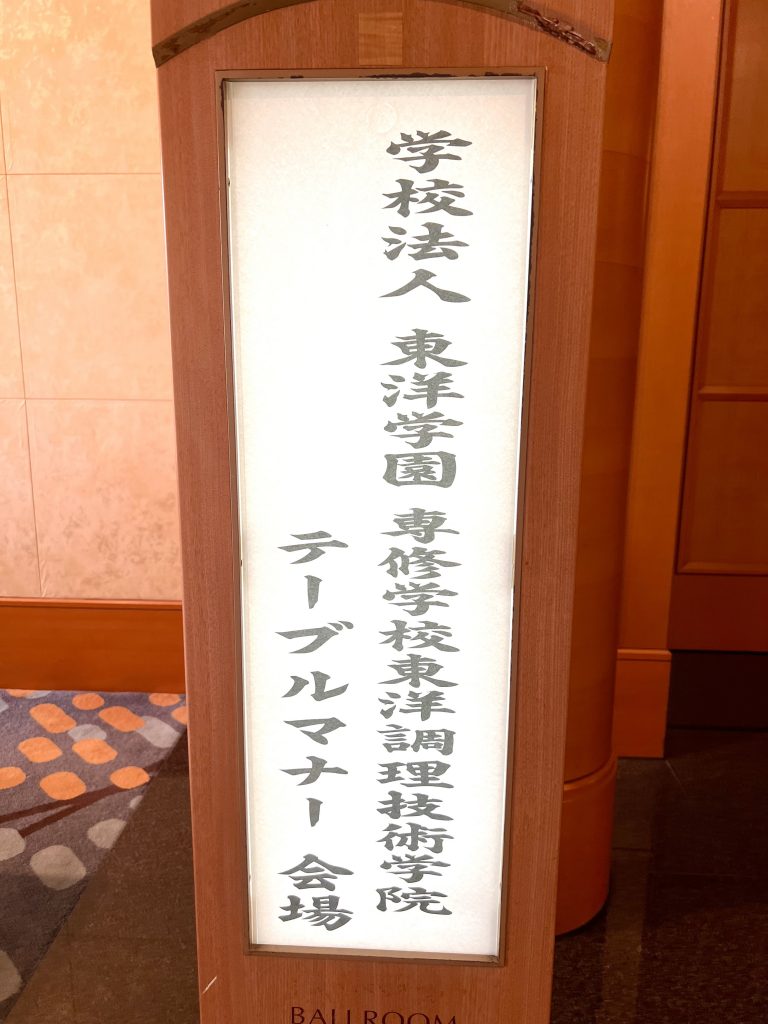 学校法人 東洋学園 専修学校東洋調理技術学院
テーブルマナー 会場
BALLROOM